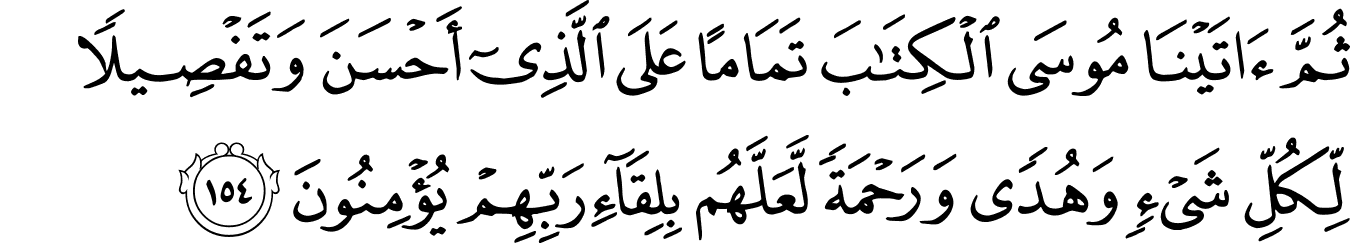 ثُمَّ ءَاتَيْنَا مُوسَى ٱلْكِتَٰبَ تَمَامًا عَلَى ٱلَّذِىٓ أَحْسَنَ وَتَفْصِيلًا
لِّكُلِّ شَىْءٍ وَهُدًى وَرَحْمَةً لَّعَلَّهُم بِلِقَآءِ رَبِّهِمْ يُؤْمِنُونَ ١٥٤